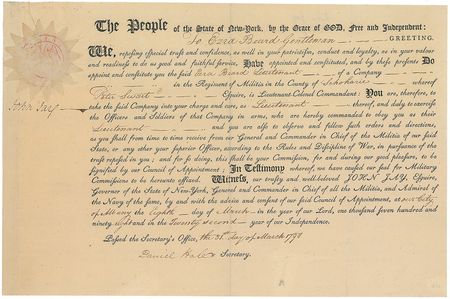 The People of the State of New-York, by the Grace of GOD, Free and Independent:
To Ezra Beard Gentleman GREETING.
We, reposing especial trust and confidence, as well in your patriotism, conduct and loyalty, as in your valour
and readiness to do us good and faithful service, Have appointed and constituted, and by these presents Do
appoint and constitute you the said Ezra Beard Lieutenant of a Company
in the Regiment of Militia in the County of Schoharie whereof
Peter Swart Esquire, is Lieutenant Colonel Commandant: You are, therefore, to
John Jay
take the said Company into your charge and care, as Lieutenant thereof, and duly to exercise
the Officers and Soldiers of that Company in arms, who are hereby commanded to obey you as their
Lieutenant and you are also to observe and follow such orders and directions,
as you shall from time to time receive from our General and Commander in Chief of the Militia of our said
State, or any other your Superior Officer, according to the Rules and Discipline of War, in pursuance of the
trust reposed in you; and for so doing, this shall be your Commission, for and during our good pleasure, to be
signified by our Council of Appointment. In Testimony whereof, we have caused our seal for Military
Commissions to be hereunto affixed. Witness, our trusty and well-beloved JOHN JAY, Esquire,
Governor of the State of New-York, General and Commander in Chief of all the Militia, and Admiral of
the Navy of the same, by and with the advice and consent of our said Council of Appointment, at our City
of Albany the eighth day of March in the year of our Lord, one thousand seven hundred and
ninety eight and in the Twenty second year of our Independence.
Passed the Secretary's Office, the 31st day of March 1798
Daniel Hale Secretary.